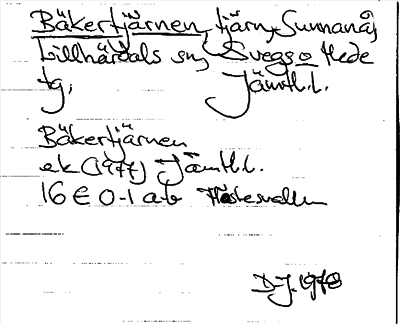 Bäkertjärnen, tjärn, Sunnanå,
Lillhärdals sn, Svegs o Hede
tg, Jämtl.l.
Bäkertjärnen
ek (1977) Jämtl.l.
16 E 0-1 a-b
D-J. 1978